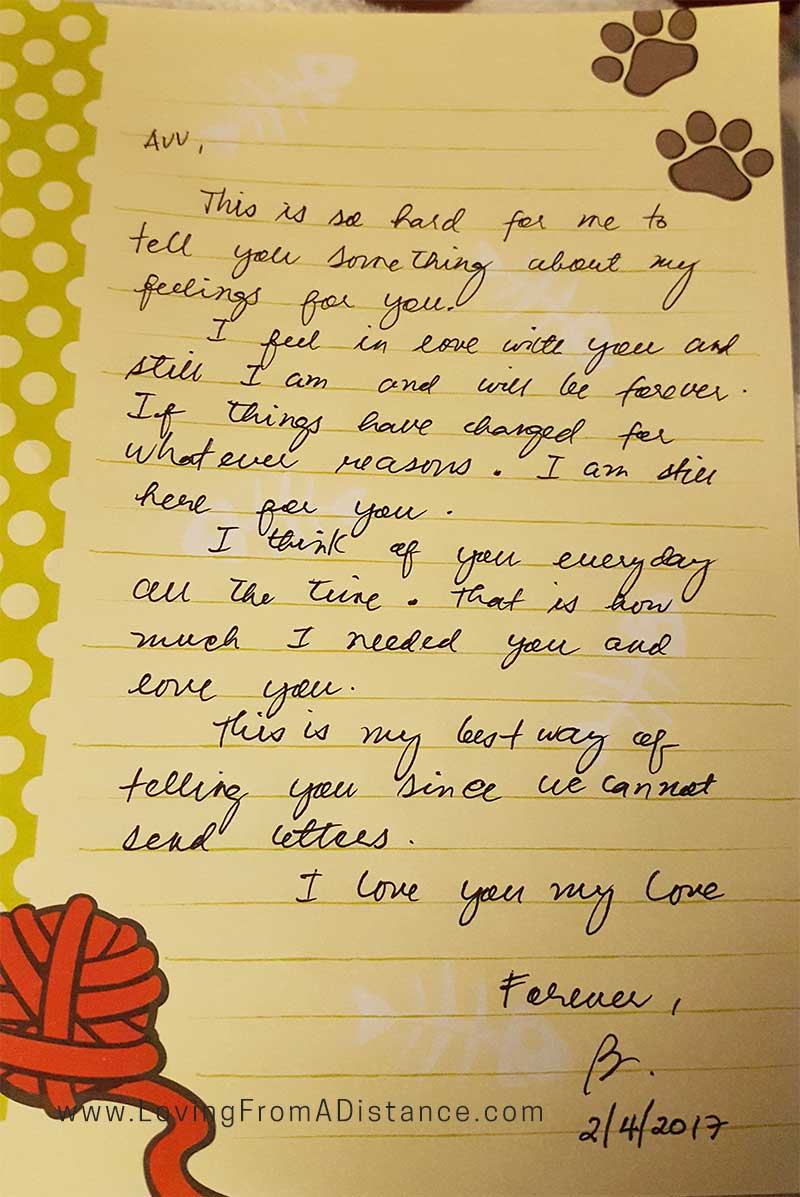 AVV,
This is so hard for me to
tell you something about my
feelings for you.
I feel in love with you and
still I am and will be forever.
If things have changed for
whatever reasons. I am still
here for you.
I think of you everyday
all the time. That is how
much I needed you and
love you.
This is my best way of
telling you since we cannot
send letters.
I love you my love
Forever,
B.
2/4/2017
www.LovingFromADistance.com